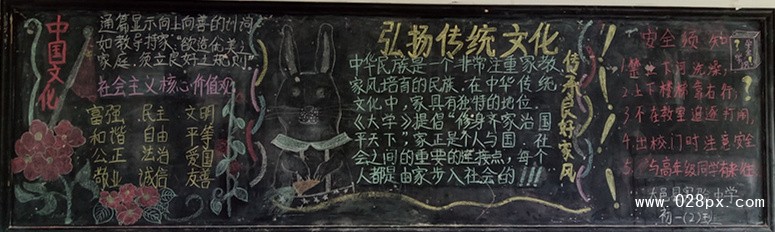 中国文化
通篇显示向上向善的
如教导持家"欲造优美之
家庭,须立良好之规则"
社会主义核心价值观
富强 民主 文明
和谐 自由 平等
公正 法治 爱国
敬业 诚信 友善
弘扬传统文化
中华民族是一个非常注重家教
家风培育的民族.在中华传统
文化中,家具有独特的地位.
《大学》提倡"修身齐家治国
平天下"家正是个人与国.社
会之间的重要的连接点,每个
人都是由家步入社会的!!!
传承良好家风
安全须知
1.禁止下河洗澡,
2.上下楼梯靠右行,
3.不在教室追逐打闹,
4.出校门时注意安全
5.与高年级同学
中学
初一(2)
www.028px.com